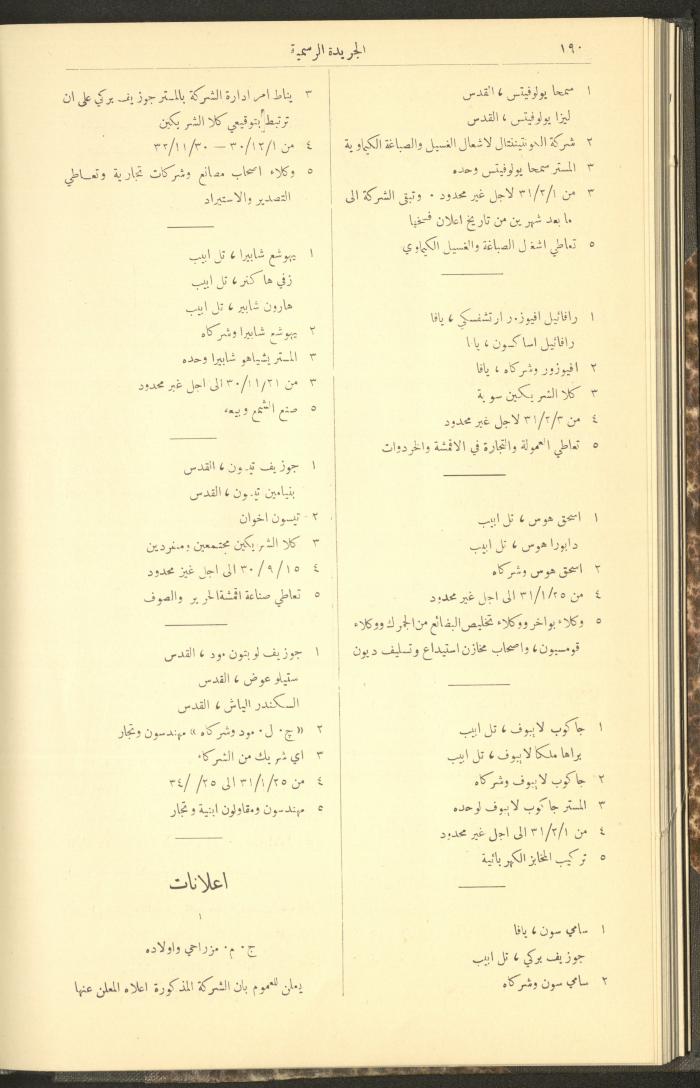 ١٩٠
الجريدة الرسمية
١ سمحا يولوفيتس ، القدس
ليزا يولوفيتس ، القدس
٢ شركة الكونتيننتال لاشغال الغسيل والصباغة الكيماوية
٣ المستر سمحا يولوفيتس وحده
٣ من ٣١/٢/١ لاجل غير محدود ٠ وتبقى الشركة الى
ما بعد شهرين من تاريخ اعلان فسخها
٥ تعاطي اشغال الصباغة والغسيل الكيماوي
١ رافائيل افيوزور ارتشفسكي ، يافا
رافائيل اساكسون ، يافا
٢ افيوزور وشركاه ، يافا
٣ كلا الشريكين سوية
٤ من ٣١/٢/٣ لاجل غير محدود
٥ تعاطي العمولة والتجارة في الاقمشة والخردوات
١ اسحق هوس ، تل ابيب
دابورا هوس ، تل ابيب
٢ اسحق هوس وشركاه
٤ من ٣١/١/٢٥ الى اجل غير محدود
٥ وكلاء بواخر ووكلاء تخليص البضائع من الجمرك ووكلاء
قومسيون، واصحاب مخازن استيداع وتسليف ديون
١ جاكوب لايبوف ، تل ابيب
براها ملكا لايبوف ، تل ابيب
٢ جاكوب لايبوف وشركاه
٣ المستر جاكوب لايبوف لوحده
٤ من ٣١/٢/١ الى اجل غير محدود
٥ تركيب المخابز الكهربائية
١ سامي سون ، يافا
جوزيف بركي ، تل ابيب
٢ سامي سون وشركاه
٣ يناط امر ادارة الشركة بالمستر جوزيف بركي على ان
ترتبط بتوقيعي كلا الشريكين
٤ من ٣٠/١٢/١ — ٣٢/١١/٣٠
٥ وكلاء اصحاب مصانع وشركات تجارية وتعاطي
التصدير والاستيراد
١ يهوشع شابيرا ، تل ابيب
زفي هاكنر ، تل ابيب
هارون شابير ، تل ابيب
٢ يهوشع شابيرا وشركاه
٣ المستر يشياهو شابيرا وحده
٣ من ٣٠/١١/٢١ الى اجل غير محدود
٥ صنع الشمع وبيعه
١ جوزيف تيسون ، القدس
بنيامين تيسون ، القدس
٢ تيسون اخوان
٣ كلا الشريكين مجتمعين ومنفردين
٤ ٣٠/٩/١٥ الى اجل غير محدود
٥ تعاطي صناعة اقمشة الحرير والصوف
١ جوزيف لوبتون مود ، القدس
ستيلو عوض ، القدس
السكندر الياش ، القدس
٢ «ج٠ ل٠ مود وشركاه» مهندسون وتجار
٣ اي شريك من الشركاء
٤ من ٣١/١/٢٥ الى ٢٥/ /٣٤
٥ مهندسون ومقاولون ابنية وتجار
اعلانات
١
ج٠ م٠ مزراحي واولاده
يعلن للعموم بان الشركة المذكورة اعلاه المعلن عنها